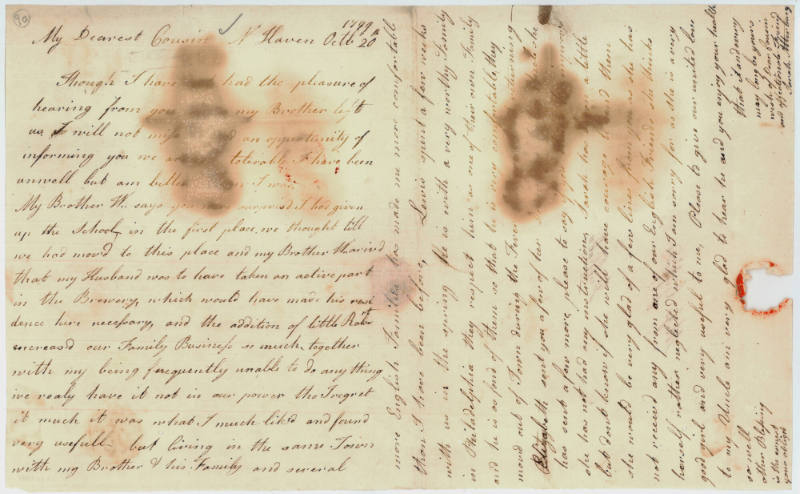 90
1799
My Dearest Cousin N Haven Octb 20th
Though I have had the pleasure of
hearing from you my Brother left
us I will not an opportunity of
informing you we tolerably I have been
unwell but am better I was
My Brother W. says you surprised I had given
up the School, in the first place, we thought till
we had movd to this place and my Brother Tharivd
that my Husband was to have taken an active part
in the Brewery, which would have made his resi
dence here necessary, and the addition of little Robt
increasd our Family Business so much, together
with my being frequently unable to do any thing
we realy have it not in our power tho I regret
it much it was what I much liked and found
very usefull but living in the same Town
with my Brother & his Family and several
more English Families has made me more comfortable
than I have been before, Lewis spent a few weeks
with us in the spring he is with a very worthy Family
in Philadelphia they respect him as one of their own Family
and he is as fond of them so that he is very comfortable they
movd out of Town during the Fever
Elizabeth sent you a few of her she
has sent a few more, please to
she has not had my instruction, Sarah has a little
but dont know if she will have courage to send them
she would be very glad of a few lines from you she has
not received any from one of our English Friends she thinks
herself rather neglected which I am sorry for as she is a very
good girl and very useful to me, Please to give our united love
to my Uncle am very glad to hear he and you enjoy your health
so well
that it and every
other Blessing
may long be yours
is the earnest
wish of your Cousin
your obliged
and affectionate Friend
Sarah